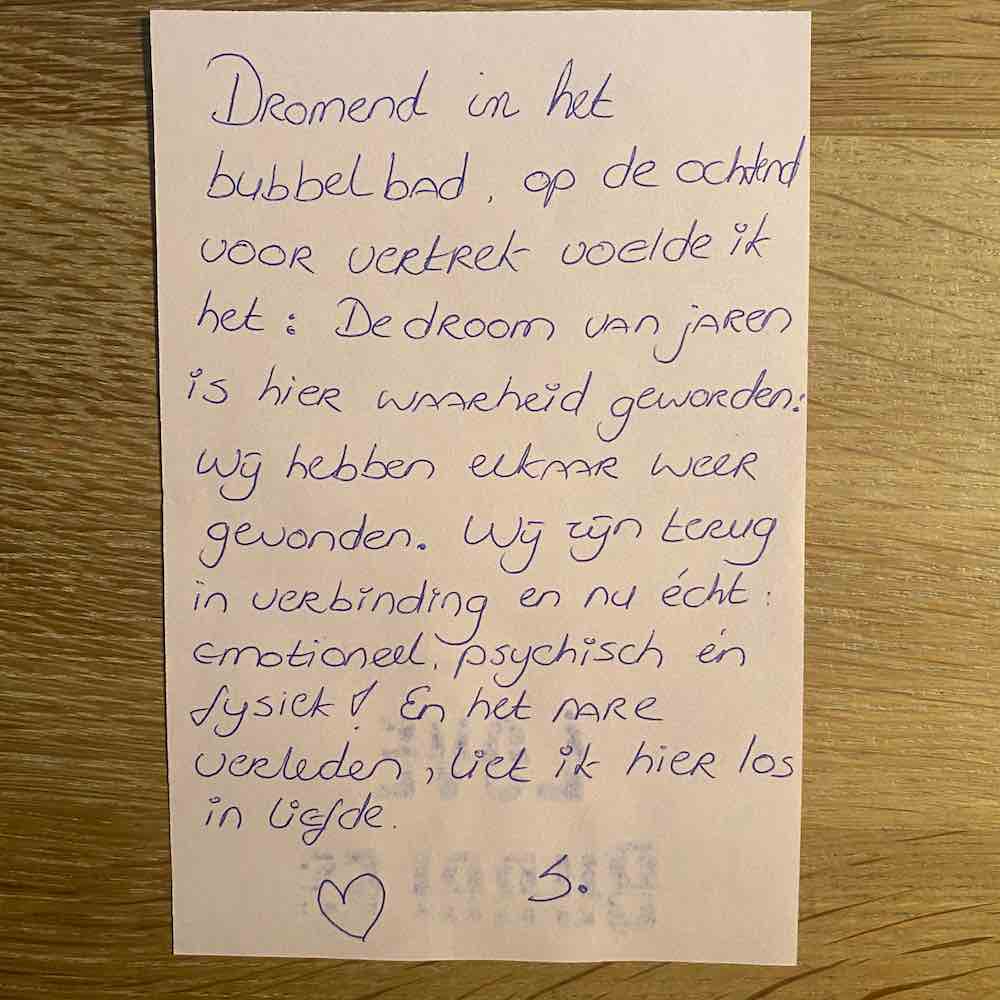 Dromend in het
bubbelbad, op de ochtend
voor vertrek voelde ik
het: De droom van jaren
is hier waarheid geworden:
Wij hebben elkaar weer
gevonden. Wij zijn terug
in verbinding en nu écht:
emotioneel, psychisch én
fysiek! En het rare
verleden, liet ik hier los
in liefde.
♡ S.
LOVE